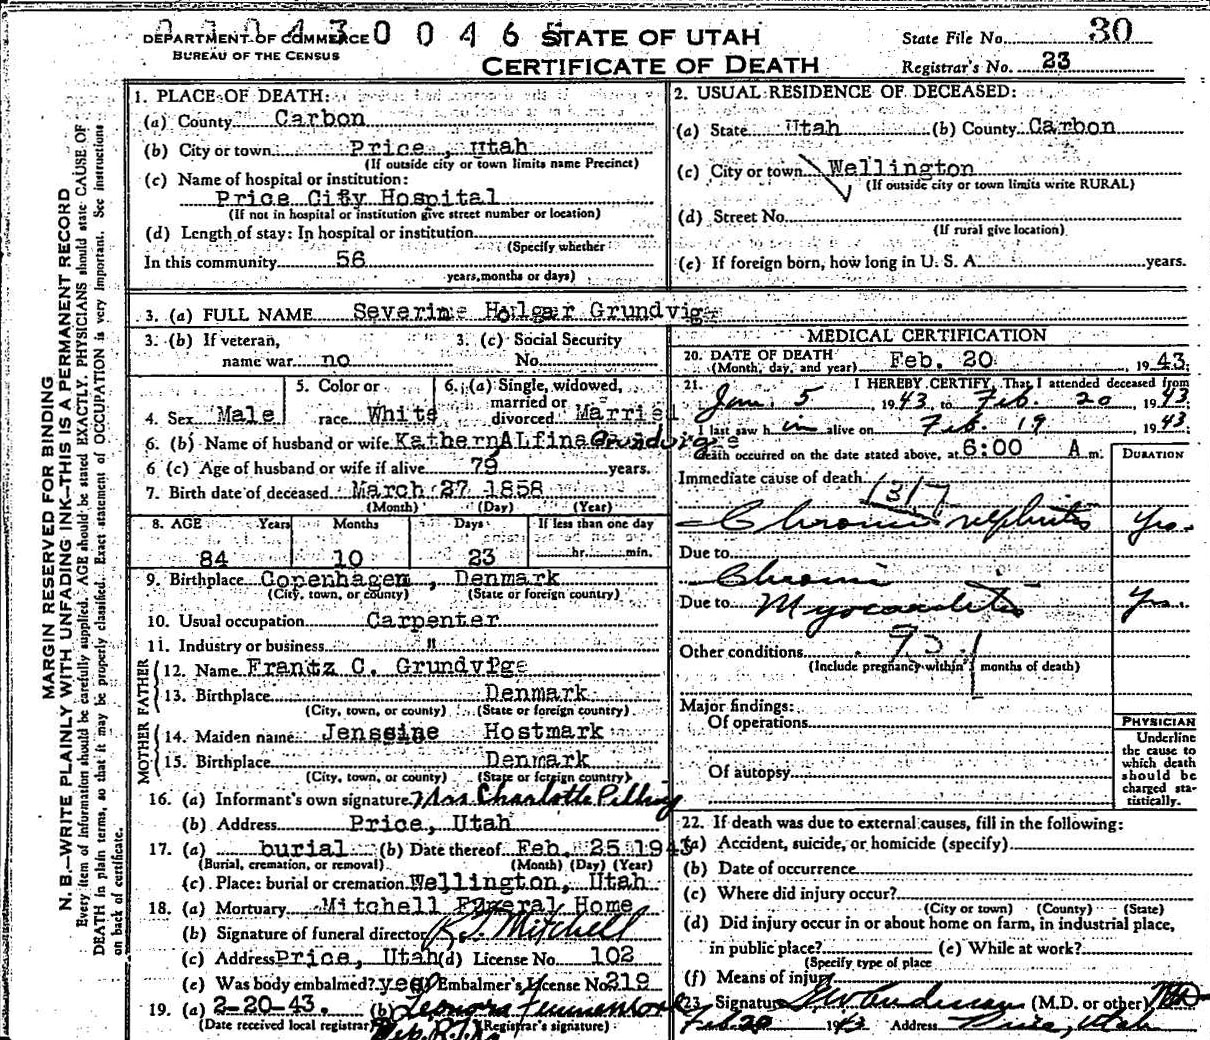 0 0 4 6 5
DEPARTMENT OF COMMERCE
BUREAU OF THE CENSUS
STATE OF UTAH
CERTIFICATE OF DEATH
State File No. 30
Registrar's No. 23
MARGIN RESERVED FOR BINDING
N. B.—WRITE PLAINLY WITH UNFADING INK—THIS IS A PERMANENT RECORD
Every item of information should be carefully supplied. AGE should be stated EXACTLY. PHYSICIANS should state CAUSE OF
DEATH in plain terms, so that it may be properly classified. Exact statement of OCCUPATION is very important. See instructions
on back of certificate.
1. PLACE OF DEATH:
(a) County Carbon
(b) City or town Price, Utah
(If outside city or town limits name Precinct)
(c) Name of hospital or institution:
Price City Hospital
(If not in hospital or institution give street number or location)
(d) Length of stay: In hospital or institution
(Specify whether
In this community 56
years, months or days)
2. USUAL RESIDENCE OF DECEASED:
(a) State Utah (b) County Carbon
(c) City or town Wellington
(If outside city or town limits write RURAL)
(d) Street No.
(If rural give location)
(e) If foreign born, how long in U. S. A. years.
3. (a) FULL NAME Severine Holgar Grundvige
3. (b) If veteran, name war no
3. (c) Social Security No.
4. Sex Male
5. Color or race White
6. (a) Single, widowed, married or divorced Married
6. (b) Name of husband or wife Kathern ALfina Grundvige
6 (c) Age of husband or wife if alive 79 years.
7. Birth date of deceased March 27 1858
(Month) (Day) (Year)
8. AGE Years Months Days If less than one day
84 10 23 hr. min.
9. Birthplace Copenhagen, Denmark
(City, town, or county) (State or foreign country)
10. Usual occupation Carpenter
11. Industry or business "
FATHER
12. Name Frantz C. Grundvige
13. Birthplace Denmark
(City, town, or county) (State or foreign country)
MOTHER
14. Maiden name Jenssine Hostmark
15. Birthplace Denmark
(City, town, or county) (State or foreign country)
16. (a) Informant's own signature Mrs Charlotte Pilling
(b) Address Price, Utah
17. (a) burial (b) Date thereof Feb. 25 1943
(Burial, cremation, or removal) (Month) (Day) (Year)
(c) Place: burial or cremation Wellington, Utah
18. (a) Mortuary Mitchell Funeral Home
(b) Signature of funeral director Mitchell
(c) Address Price, Utah (d) License No. 102
(e) Was body embalmed? yes (f) Embalmer's License No. 219
19. (a) 2-20-43. (b) Leonora
(Date received local registrar) (Registrar's signature)
MEDICAL CERTIFICATION
20. DATE OF DEATH Feb. 20, 1943
(Month, day, and year)
21. I HEREBY CERTIFY, That I attended deceased from
Jan. 5 1943 to Feb. 20, 1943
I last saw him alive on Feb. 19 1943
death occurred on the date stated above, at 6:00 A m.
DURATION
Immediate cause of death 131
Chronic nephritis Yrs.
Due to
Chronic
Due to Myocarditis Yrs.
Other conditions
(Include pregnancy within 3 months of death)
Major findings:
Of operations
Of autopsy
PHYSICIAN
Underline
the cause to
which death
should be
charged sta-
tistically.
22. If death was due to external causes, fill in the following:
(a) Accident, suicide, or homicide (specify)
(b) Date of occurrence
(c) Where did injury occur?
(City or town) (County) (State)
(d) Did injury occur in or about home on farm, in industrial place,
in public place? (e) While at work?
(Specify type of place
(f) Means of injury
23. Signature (M.D. or other)
Feb. 20 1943 Address Price, Utah